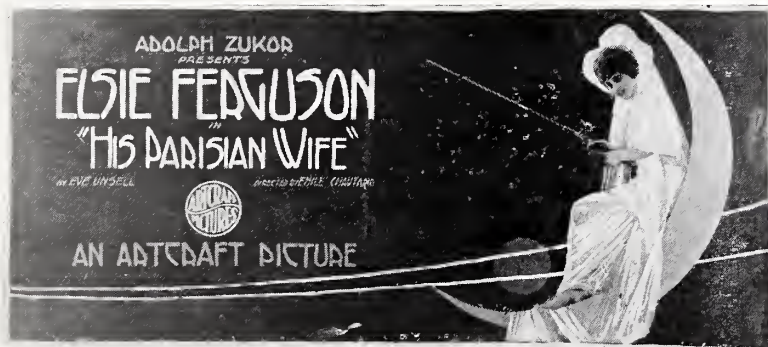 ADOLPH ZUKOR
PRESENTS
ELSIE FERGUSON
IN
"HIS PARISIAN WIFE"
BY EVE UNSELL DIRECTED BY EMILE CHAUTARD
ARTCRAFT
PICTURES
AN ARTCRAFT PICTURE